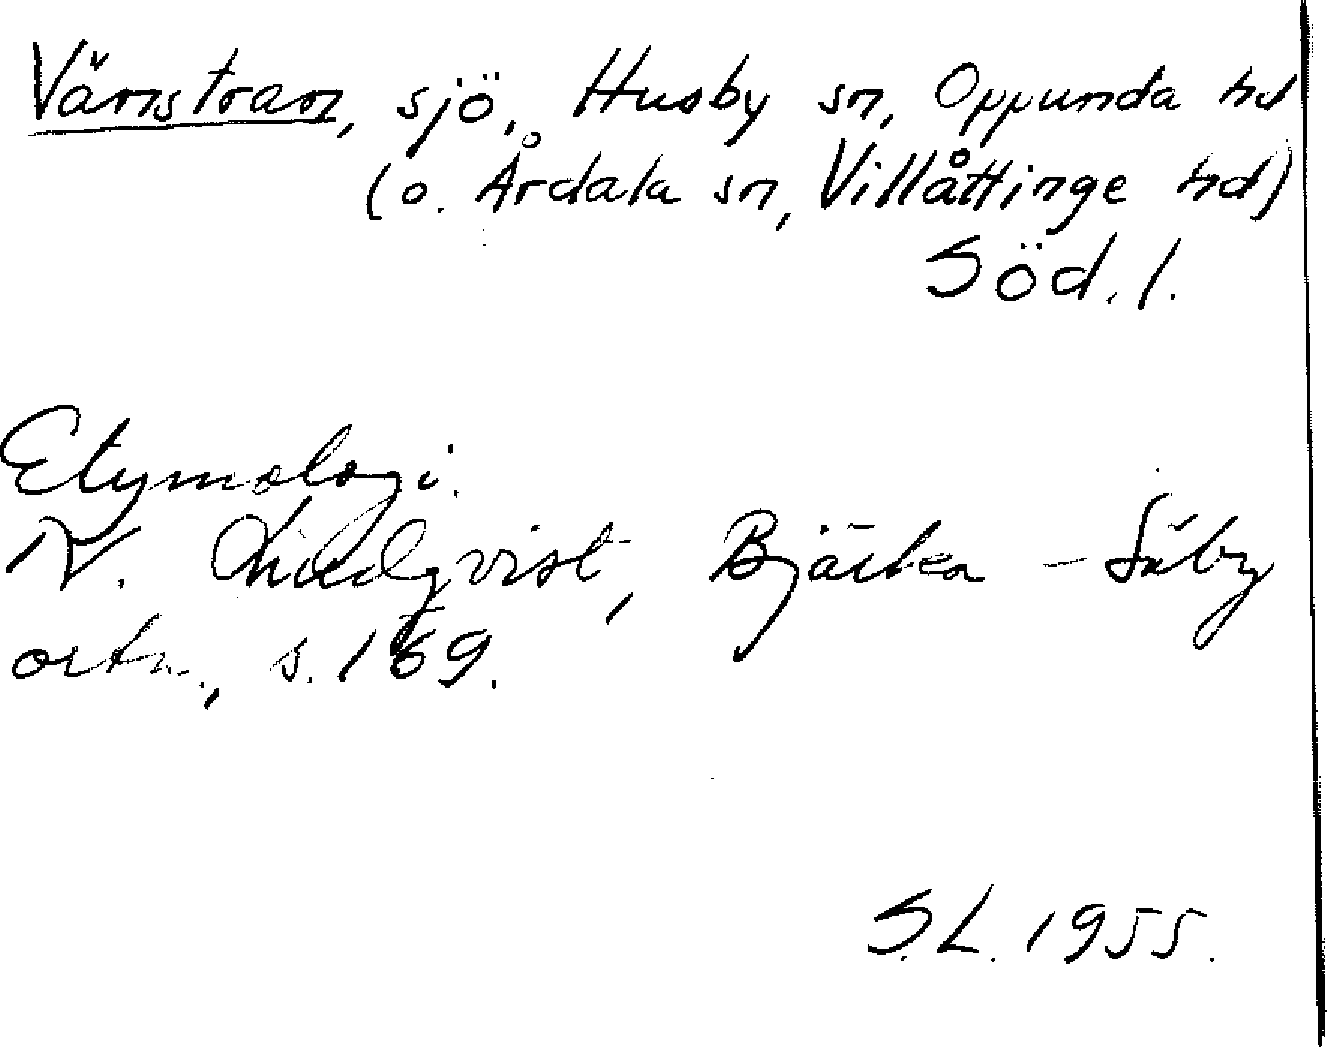 Värnstran, sjö, Husby sn, Oppunda hd
(o. Årdala sn, Villåttinge hd)
Söd. l.
Etymologi.
N. Lindqvist, Bjärka-Säby
ortn., s. 169.
S.L. 1955.